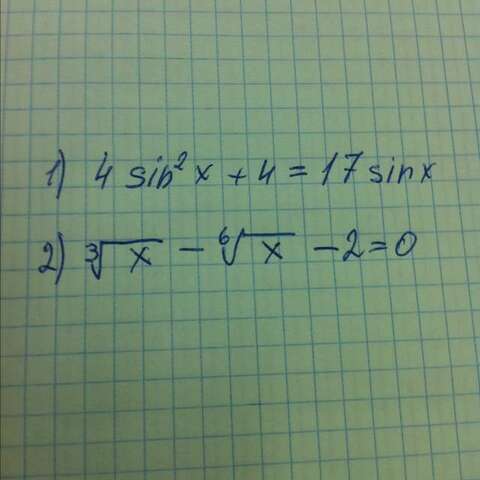 1) 4 sin²x + 4 = 17 sinx
2) ∛x - ⁶√x - 2 = 0